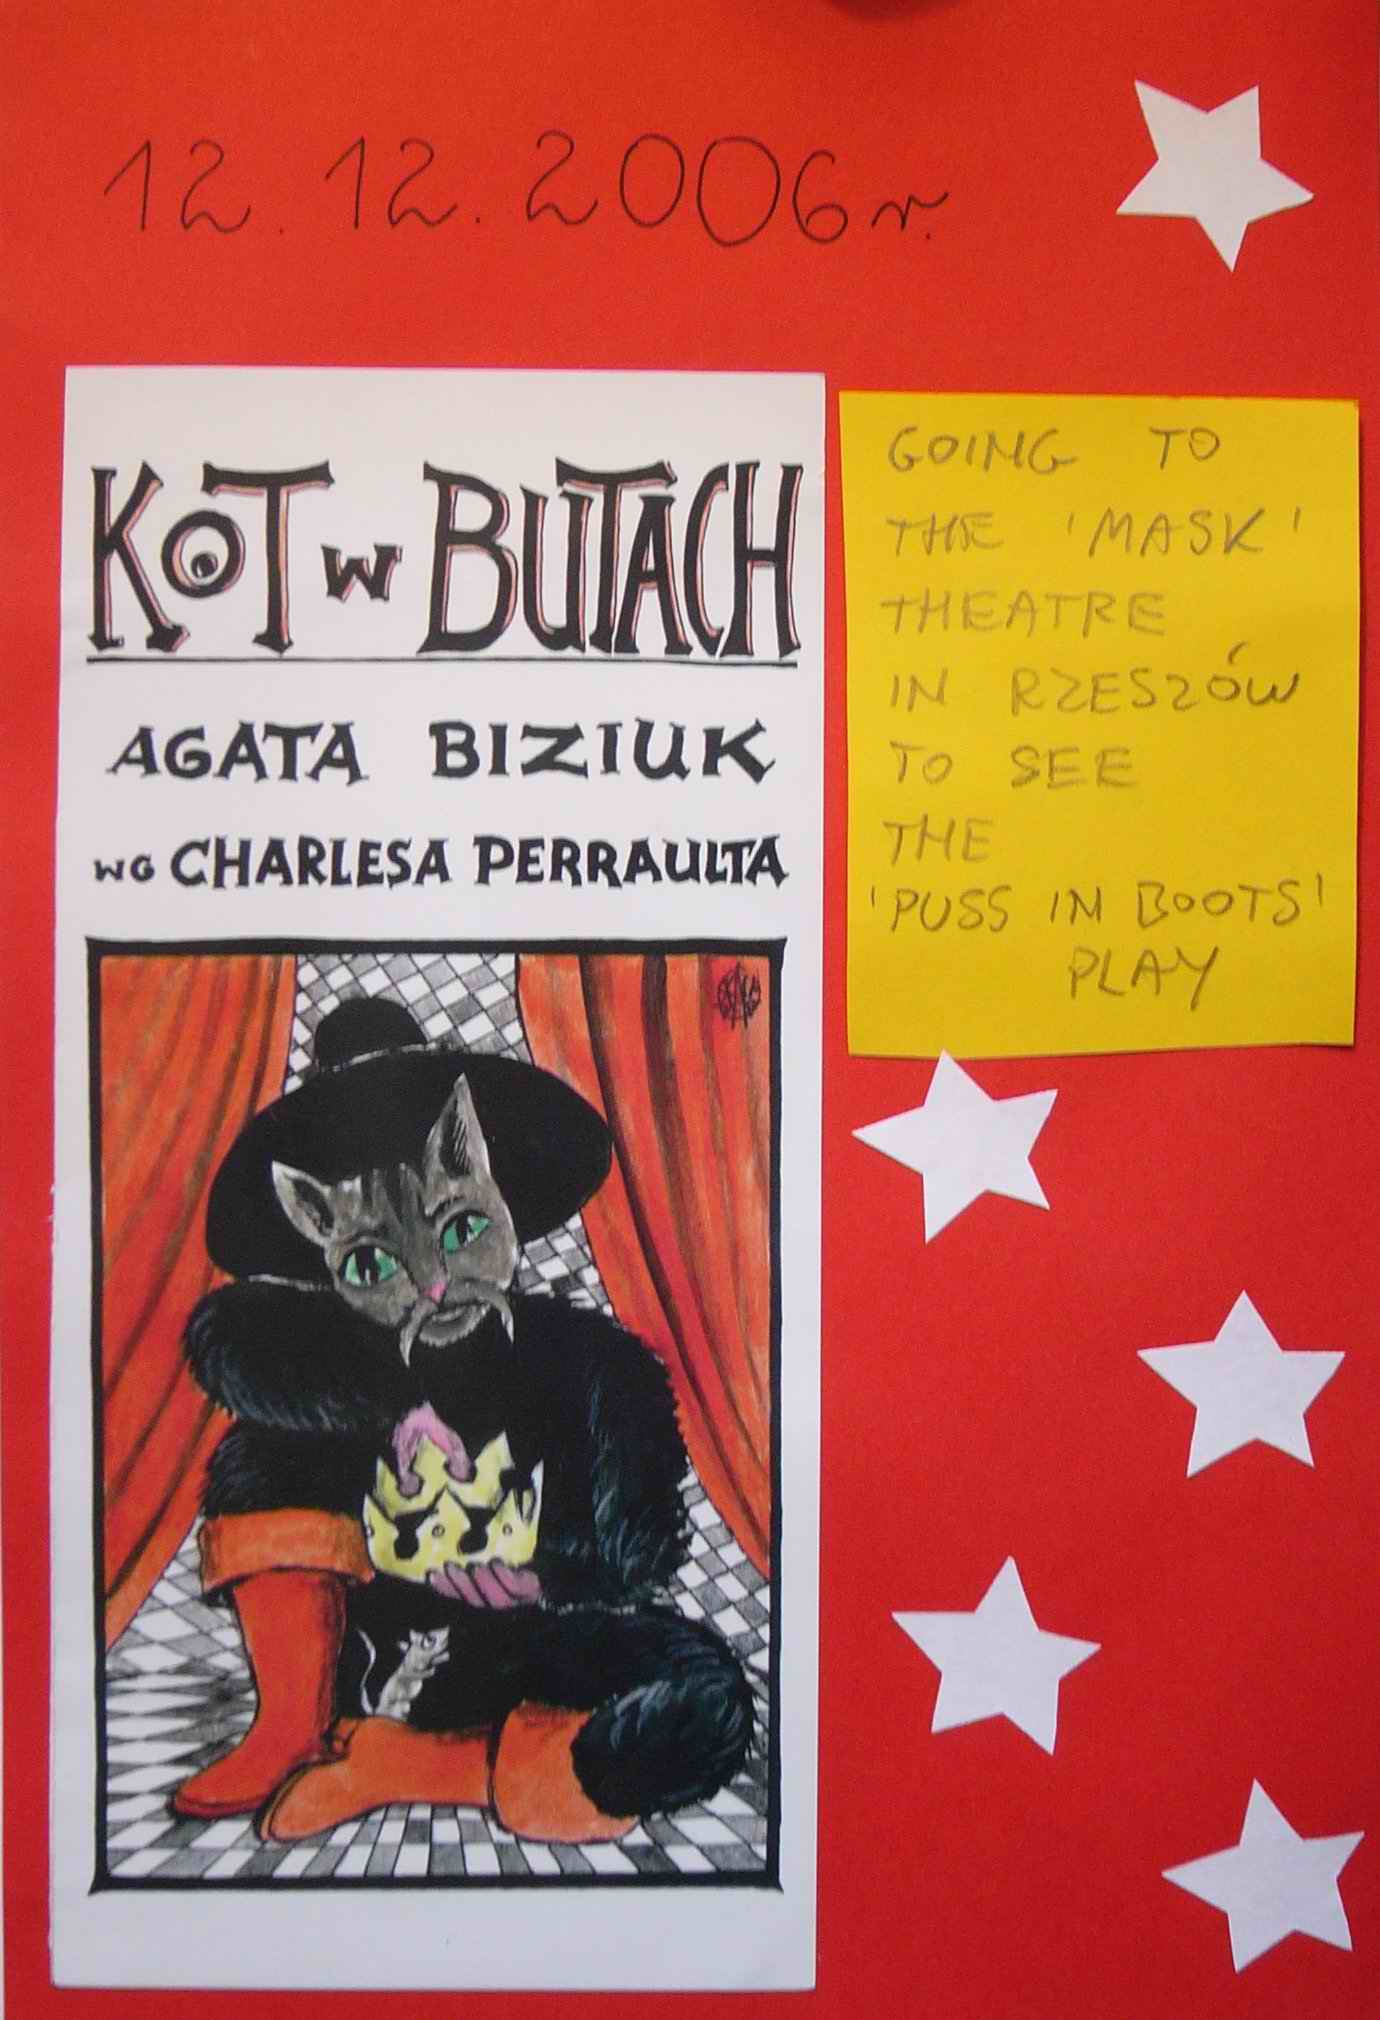 12.12.2006r.
KOT w BUTACH
AGATA BIZIUK
WG CHARLESA PERRAULTA
GOING TO
THE 'MASK'
THEATRE
IN RZESZÓW
TO SEE
THE
'PUSS IN BOOTS'
PLAY